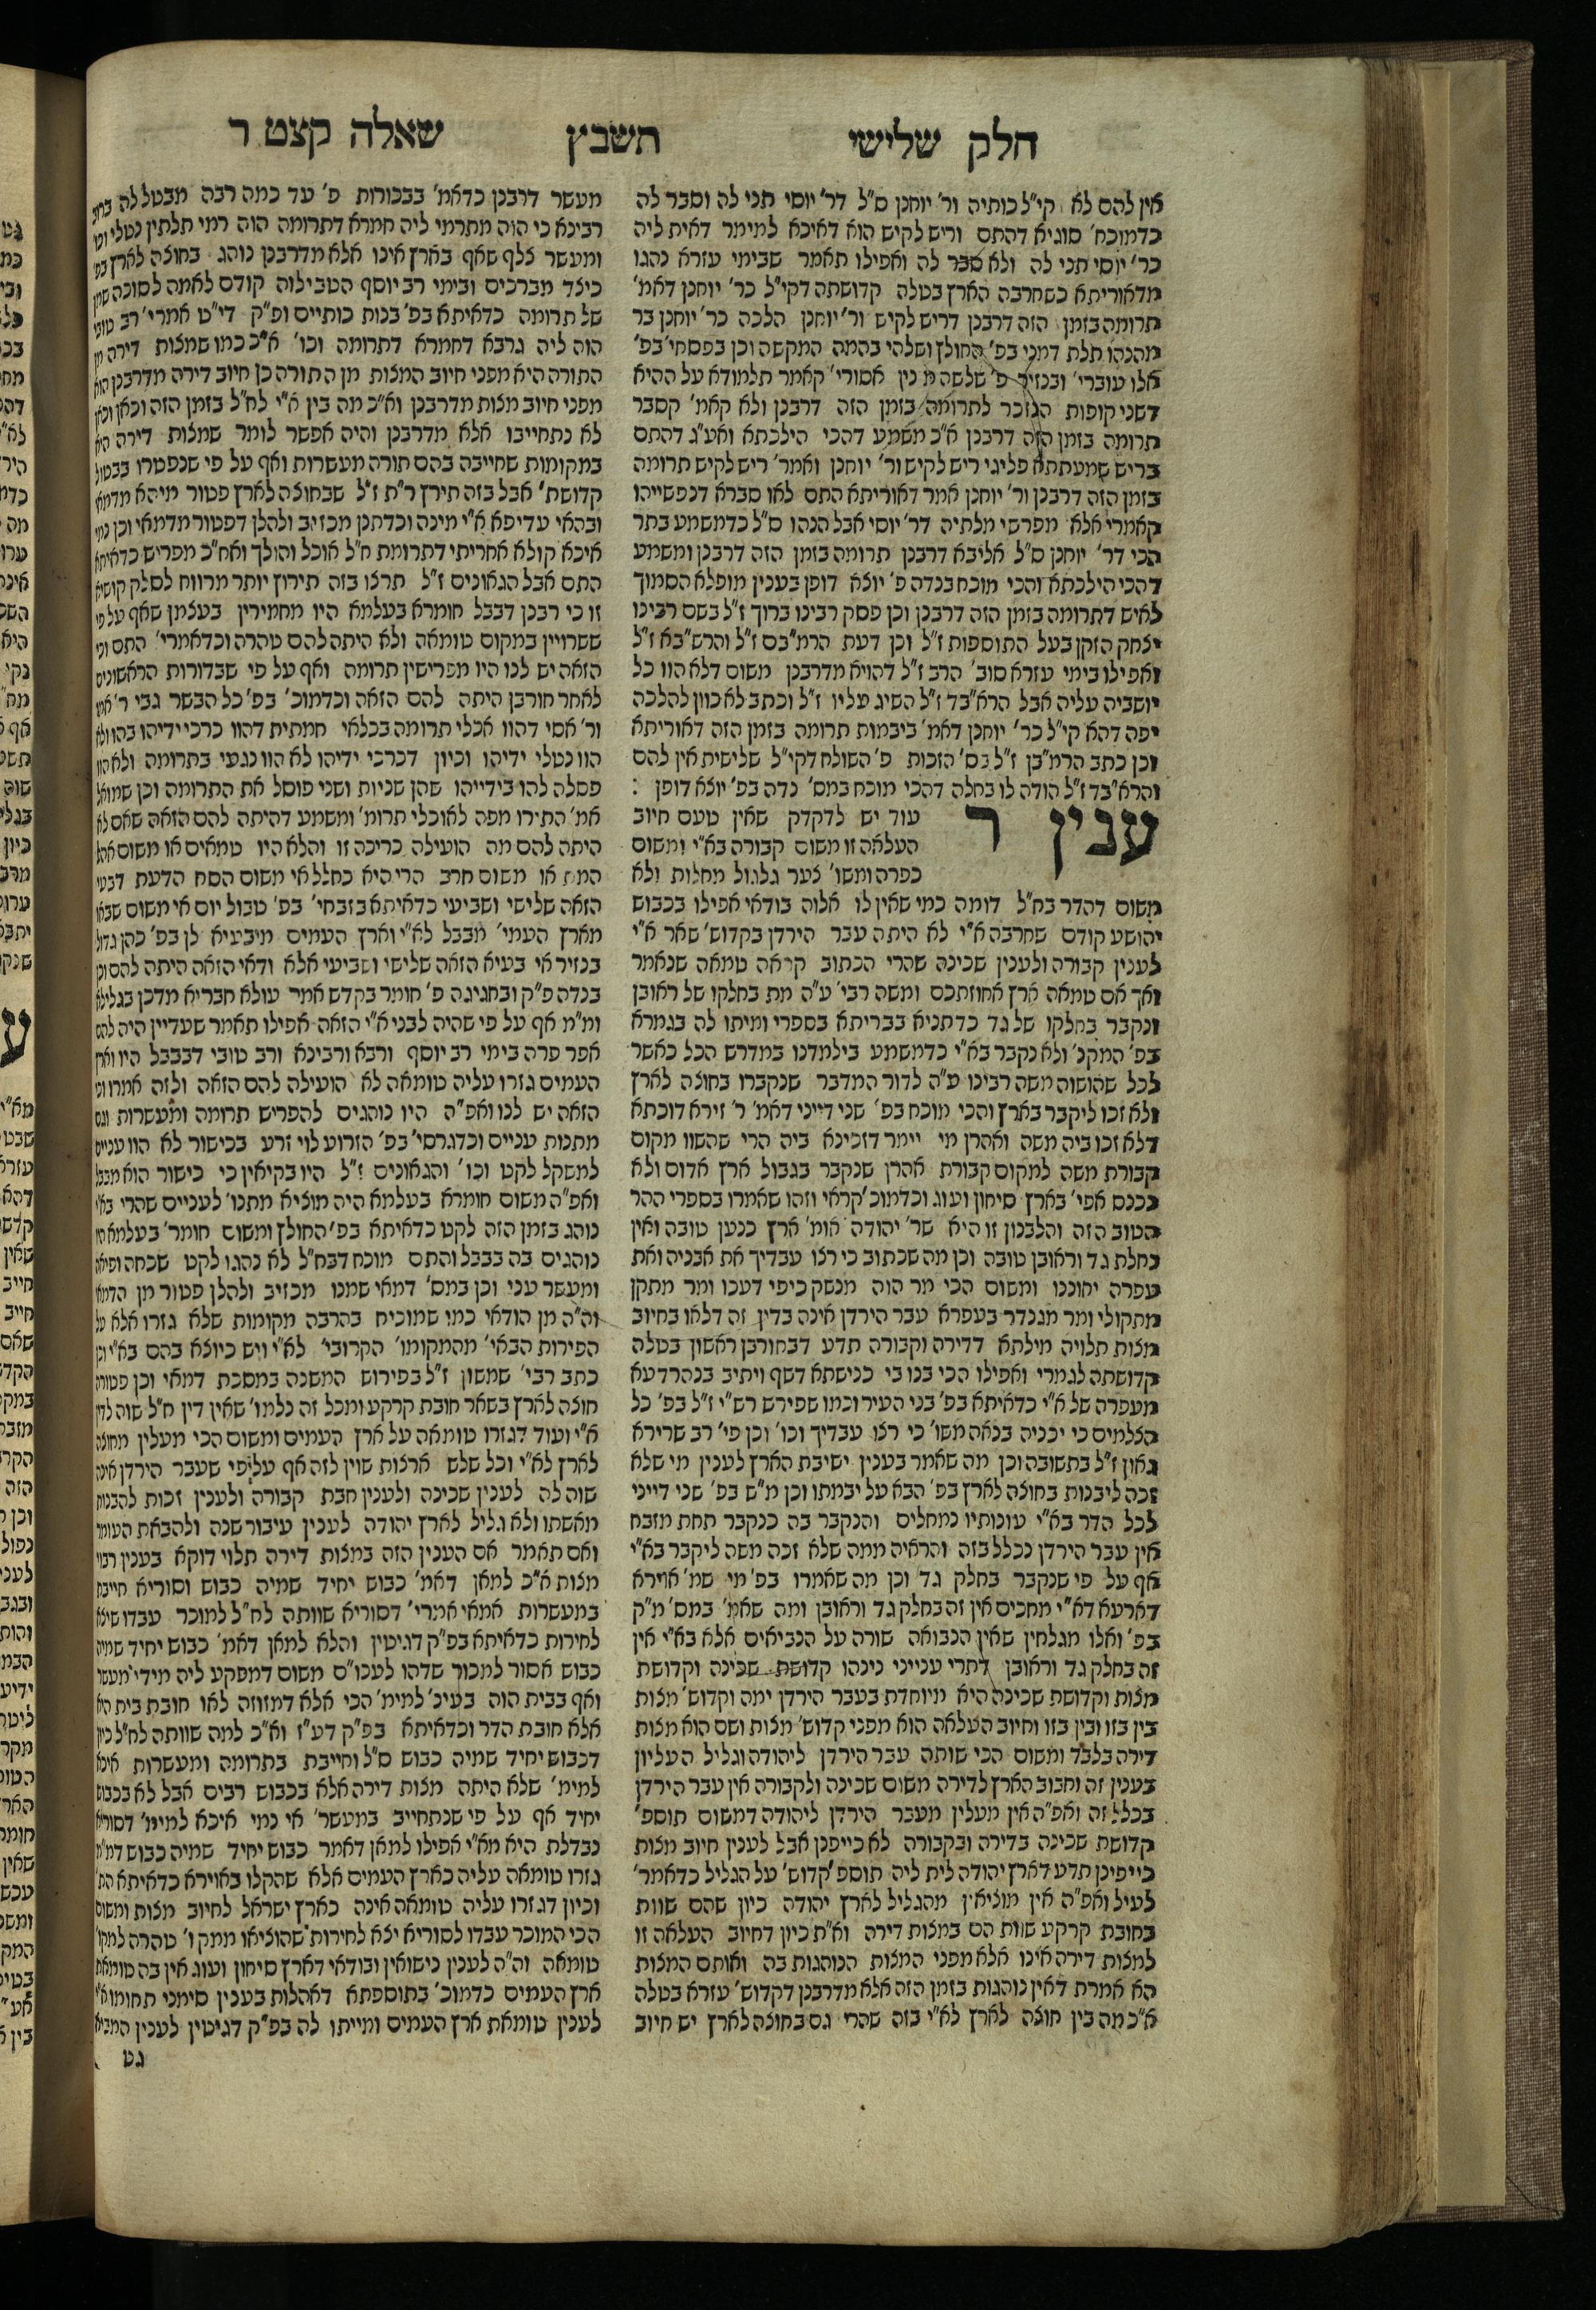 חלק שלישי
תשבץ
שאלה קצט ר
אין להם לא קי"ל כותיה ור' יוחנן ס"ל דר' יוסי תני לה וסבר לה
כדמוכח' סוגיא דהתם וריש לקיש הוא דאיכא למימר דאית ליה
כר' יוסי תני לה ולא סבר לה ואפילו תאמר שבימי עזרא נהגו
מדאוריתא כשחרבה הארץ בטלה קדושתה דקי"ל כר' יוחנן דאמ'
תרומה בזמן הזה דרבנן דריש לקיש ור' יוחנן הלכה כר' יוחנן בר
מהנהו תלת דמני בפ' החולץ ושלהי בהמה המקשה וכן בפסחי' בפ'
אלו עוברי' ובנזיר פ' שלשה מינין אסורי' קאמר תלמודא על ההיא
דשני קופות הנזכר לתרומה בזמן הזה דרבנן ולא קאמ' קסבר
תרומה בזמן הזה דרבנן א"כ משמע דהכי הילכתא ואע"ג דהתם
בריש שמעתתא פליגי ריש לקיש ור' יוחנן ואמר' ריש לקיש תרומה
בזמן הזה דרבנן ור' יוחנן אמר דאוריתא התם לאו סברא דנפשייהו
קאמרי אלא מפרשי מלתיה דר' יוסי אבל הנהו ס"ל כדמשמע בתר
הכי דר' יוחנן ס"ל אליבא דרבנן תרומה בזמן הזה דרבנן ומשמע
דהכי הילכתא והכי מוכח בנדה פ' יוצא דופן בענין מופלא הסמוך
לאיש דתרומה בזמן הזה דרבנן וכן פסק רבינו ברוך ז"ל בשם רבינו
יצחק הזקן בעל התוספות ז"ל וכן דעת הרמ"בם ז"ל והרש"בא ז"ל
ואפילו בימי עזרא סוב' הרב ז"ל דהויא מדרבנן משום דלא הוו כל
יושביה עליה אבל הרא"בד ז"ל השיג עליו ז"ל וכתב לא כוון להלכה
יפה דהא קי"ל כר' יוחנן דאמ' ביבמות תרומה בזמן הזה דאוריתא
וכן כתב הרמ"בן ז"ל בס' הזכות פ' השולח דקי"ל שלישית אין להם
והרא"בד ז"ל הודה לו בחלה דהכי מוכח במס' נדה בפ' יוצא דופן :
ענין ר עוד יש לדקדק שאין טעם חיוב
העלאה זו משום קבורה בא"י ומשום
כפרה ומשו' צער גלגול מחלות ולא
משום דהדר בח"ל דומה כמי שאין לו אלוה בודאי אפילו בכבוש
יהושע קודם שחרבה א"י לא היתה עבר הירדן בקדוש' שאר א"י
לענין קבורה ולענין שכינה שהרי הכתוב קראה טמאה שנאמר
ואך אם טמאה ארץ אחוזתכם ומשה רבי' ע"ה מת בחלקו של ראובן
ונקבר בחלקו של גד כדתניא בבריתא בספרי ומיתו לה בגמרא
בפ' המקנ' ולא נקבר בא"י כדמשמע בילמדנו במדרש הכל כאשר
לכל שהושוה משה רבינו ע"ה לדור המדבר שנקברו בחוצה לארץ
ולא זכו ליקבר בארץ והכי מוכח בפ' שני דייני דאמ' ר' זירא דוכתא
דלא זכו ביה משה ואהרן מי יימר דזכינא ביה הרי שהשוו מקום
קבורת משה למקום קבורת אהרן שנקבר בגבול ארץ אדום ולא
נכנס אפי' בארץ סיחון ועוג וכדמוכ' קראי וזהו שאמרו בספרי ההר
הטוב הזה והלבנון זו היא שר' יהודה אומ' ארץ כנען טובה ואין
נחלת גד וראובן טובה וכן מה שכתוב כי רצו עבדיך את אבניה ואת
עפרה יחוננו ומשום הכי מר הוה מנשק כיפי דעכו ומר מתקן
מתקולי ומר מגנדר בעפרא עבר הירדן אינה בדין זה דלאו בחיוב
מצות תלויה מילתא דדירה וקבורה תדע דבחורבן ראשון בטלה
קדושתה לגמרי ואפילו הכי בנו בי כנישתא דשף ויתיב בנהרדעא
מעפרה של א"י כדאיתא בפ' בני העיר וכמו שפירש רש"י ז"ל בפ' כל
הצלמים כי יכניה בנאה משו' כי רצו עבדיך וכו' וכן פי' רב שרירא
גאון ז"ל בתשובה וכן מה שאמר בענין ישיבת הארץ לענין מי שלא
זכה ליבנות בחוצה לארץ בפ' הבא על יבמתו וכן מ"ש בפ' שני דייני
לכל הדר בא"י עונותיו נמחלים והנקבר בה כנקבר תחת מזבח
אין עבר הירדן נכלל בזה והראיה ממה שלא זכה משה ליקבר בא"י
אף על פי שנקבר בחלק גד וכן מה שאמרו בפ' מי שמ' אוירא
דארעא דא"י מחכים אין זה בחלק גד וראובן ומה שאמ' במס' מ"ק
בפ' ואלו מגלחין שאין הנבואה שורה על הנביאים אלא בא"י אין
זה בחלק גד וראובן דתרי ענייני נינהו קדושת שכינה וקדושת
מצות וקדושת שכינה היא מיוחדת בעבר הירדן ימה וקדוש' מצות
בין בזו ובין בזו וחיוב העלאה הוא מפני קדוש' מצות ושם הוא מצות
דירה בלבד ומשום הכי שותה עבר הירדן ליהודה וגליל העליון
בענין זה וחבוב הארץ לדירה משום שכינה ולקבורה אין עבר הירדן
בכלל זה ואפ"ה אין מעלין מעבר הירדן ליהודה דמשום תוספ'
קדושת שכינה בדירה ובקבורה לא כייפינן אבל לענין חיוב מצות
כייפינן תדע דארץ יהודה לית ליה תוספ' קדוש' על הגליל כדאמר'
לעיל ואפ"ה אין מוציאין מהגליל לארץ יהודה כיון שהם שוות
בחובת קרקע שוות הם במצות דירה וא"ת כיון דחיוב העלאה זו
למצות דירה אינו אלא מפני המצות הנוהגות בה ואותם המצות
הא אמרת דאין נוהגות בזמן הזה אלא מדרבנן דקדוש' עזרא בטלה
א"כ מה בין חוצה לארץ לא"י בזה שהרי גם בחוצה לארץ יש חיוב
מעשר דרבנן כדאמ' בבכורות פ' עד כמה רבה מבטל לה ברוב
רבינא כי הוה מתרמי ליה חמרא דתרומה הוה רמי תלתין נטלי
ומעשר צלף שאף בארץ אינו אלא מדרבנן נוהג בחוצה לארץ בפ'
כיצד מברכים ובימי רב יוסף הטבילוה קודם לאמה לסוכה שמן
של תרומה כדאיתא בפ' בנות כותיים ופ"ק די"ט אמרי' רב טובי
הוה ליה גרבא דחמרא דתרומה וכו' א"כ כמו שמצות דירה מן
התורה היא מפני חיוב המצות מן התורה כן חיוב דירה מדרבנן הוא
מפני חיוב מצות מדרבנן וא"כ מה בין א"י לח"ל בזמן הזה וכאן וכאן
לא נתחייבו אלא מדרבנן והיה אפשר לומר שמצות דירה היא
במקומות שחייבה בהם תורה מעשרות ואף על פי שנפטרו בבטול
קדושת' אבל בזה תירץ ר"ת ז"ל שבחוצה לארץ פטור מיהא מדמאי
ובהאי עדיפא א"י מינה וכדתנן מכזיב ולהלן דפטור מדמאי וכן נמי
איכא קולא אחריתי דתרומת ח"ל אוכל והולך ואח"כ מפריש כדאיתא
התם אבל הגאונים ז"ל תרצו בזה תירוץ יותר מרווח לסלק קושיא
זו כי רבנן דבבל חומרא בעלמא היו מחמירין בעצמן שאף על פי
ששרויין במקום טומאה ולא היתה להם טהרה וכדאמרי' התם וכי
הזאה יש לנו היו מפרישין תרומה ואף על פי שבדורות הראשונים
לאחר חורבן היתה להם הזאה וכדמוכ' בפ' כל הבשר גבי ר' אמי
ור' אסי דהוו אכלי תרומה בבלאי חמתית דהוו כרכי ידיהו בהו ולא
הוו נטלי ידיהו וכיון דכרכי ידיהו לא הוו נגעי בתרומה ולא הוו
פסלה להו בידייהו שהן שניות ושני פוסל את התרומה וכן שמואל
אמ' התירו מפה לאוכלי תרומ' ומשמע דהיתה להם הזאה שאם לא
היתה להם מה הועילה כריכה זו והלא היו טמאים או משום אהל
המת או משום חרב הרי היא כחלל אי משום הסח הדעת דבעי
הזאה שלישי ושביעי כדאיתא בזבחי' בפ' טבול יום אי משום שבאו
מארץ העמי' מבבל לא"י וארץ העמים מיבעיא לן בפ' כהן גדול
בנזיר אי בעיא הזאה שלישי ושביעי אלא ודאי הזאה היתה להם וכן
בנדה פ"ק ובחגיגה פ' חומר בקדש אמר עולא חבריא מדכן בגלילא
ומ"מ אף על פי שהיה לבני א"י הזאה אפילו תאמר שעדיין היה להם
אפר פרה בימי רב יוסף ורבא ורבינא ורב טובי דבבבל היו וארץ
העמים גזרו עליה טומאה לא הועילה להם הזאה ולזה אמרו וכי
הזאה יש לנו ואפ"ה היו נוהגים להפריש תרומה ומעשרות וגם
מתנות עניים וכדגרסי' בפ' הזרוע לוי זרע בכישור לא הוו עניים
למשקל לקט וכו' והגאונים ז"ל היו בקיאין כי כישור הוא מבבל
ואפ"ה משום חומרא בעלמא היה מוציא מתנו' לעניים שהרי בא"י
נוהג בזמן הזה לקט כדאיתא בפ' החולץ ומשום חומר' בעלמא היו
נוהגים בה בבבל והתם מוכח דבח"ל לא נהגו לקט שכחה ופיאה
ומעשר עני וכן במס' דמאי שמנו מכזיב ולהלן פטור מן הדמאי
וה"ה מן הודאי כמו שמוכיח בהרבה מקומות שלא גזרו אלא על
הפירות הבאי' מהמקומו' הקרובי' לא"י ויש כיוצא בהם בא"י וכן
כתב רבי' שמשון ז"ל בפירוש המשנה במסכת דמאי וכן פטורה
חוצה לארץ בשאר חובת קרקע ומכל זה נלמו' שאין דין ח"ל שוה לדין
א"י ועוד דגזרו טומאה על ארץ העמים ומשום הכי מעלין מחוצה
לארץ לא"י וכל שלש ארצות שוין לזה אף על פי שעבר הירדן אינה
שוה לה לענין שכינה ולענין חבת קבורה ולענין זכות להבנות
מאשתו ולא גליל לארץ יהודה לענין עיבור שנה ולהבאת העומר
ואם תאמר אם הענין הזה במצות דירה תלוי דוקא בענין רבוי
מצות א"כ למאן דאמ' כבוש יחיד שמיה כבוש וסוריא חייבת
במעשרות אמאי אמרי' דסוריא שוותה לח"ל למוכר עבדו שיצא
לחירות כדאיתא בפ"ק דגיטין והלא למאן דאמ' כבוש יחיד שמיה
כבוש אסור למכור שדהו לעכו"ם משום דמפקע ליה מידי מעשר
ואף בבית הוה בעינ' למימ' הכי אלא דמזוזה לאו חובת בית היא
אלא חובת הדר וכדאיתא בפ"ק דע"ז וא"כ למה שוותה לח"ל כיון
דכבוש יחיד שמיה כבוש ס"ל וחייבת בתרומה ומעשרות איכא
למימ' שלא היתה מצות דירה אלא בכבוש רבים אבל לא בכבוש
יחיד אף על פי שנתחייב במעשר' אי נמי איכא למימ' דסוריא
נבדלת היא מא"י אפילו למאן דאמר כבוש יחיד שמיה כבוש דמ"מ
גזרו טומאה עליה כארץ העמים אלא שהקלו באוירא כדאיתא הת'
וכיון דגזרו עליה טומאה אינה כארץ ישראל לחיוב מצות ומשום
הכי המוכר עבדו לסוריא יצא לחירות שהוציאו ממקו' טהרה למקו'
טומאה וה"ה לענין נישואין ובודאי דארץ סיחון ועוג אין בה טומאת
ארץ העמים כדמוכ' בתוספתא דאהלות בענין סימני תחומו א"י
לענין טומאת ארץ העמים ומייתו לה בפ"ק דגיטין לענין המביא
גט